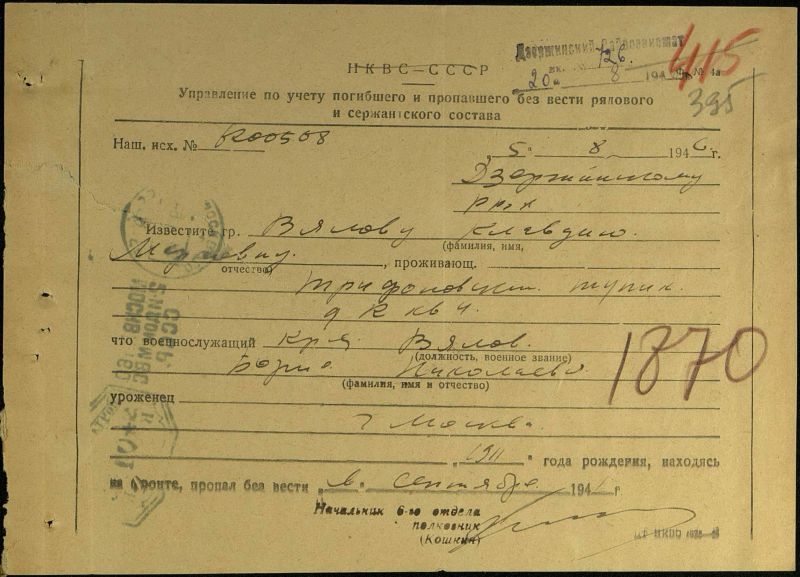 Дзержинский Райвоенкомат
726
20 8 194
415
НКВС—СССР
Ф. № 4а
395
Управление по учету погибшего и пропавшего без вести рядового
и сержантского состава
Наш. исх. № 800508
„5" 8 1946 г.
Дзержинскому
РВК
Известите гр. Вялову Клавдию
(фамилия, имя,
отчество)
, проживающ.
Трифоновский тупик
д 8 кв 4.
что военнослужащий кр-ц Вялов
(должность, военное звание)
Борис Николаевич
(фамилия, имя и отчество)
1870
уроженец
г Москва.
1911 года рождения, находясь
на фронте, пропал без вести „в" сентябре 194 г
Начальник 6-го отдела
полковник
(Кошкин)